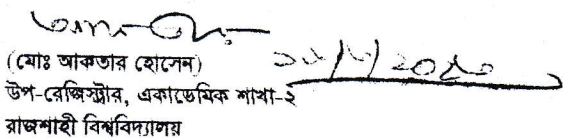 (মোঃ আকতার হোসেন)
উপ-রেজিস্ট্রার, একাডেমিক শাখা-২
রাজশাহী বিশ্ববিদ্যালয়